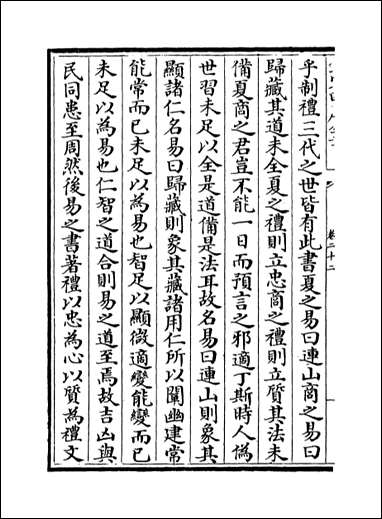 乎制禮三代之世皆有此書夏之易曰連山商之易曰
歸藏其道未全夏之禮則立忠商之禮則立質其法未
備夏商之君豈不能一日而預言之邪適丁斯時人偽
世習未足以全是道備是法耳故名易曰連山則象其
顯諸仁名易曰歸藏則象其藏諸用仁所以闡幽建常
能常而已未足以為易也智足以顯微適變能變而已
未足以為易也仁智之道合則易之道至焉故吉凶與
民同患至周然後易之書著禮以忠為心以質為禮文
卷二十二